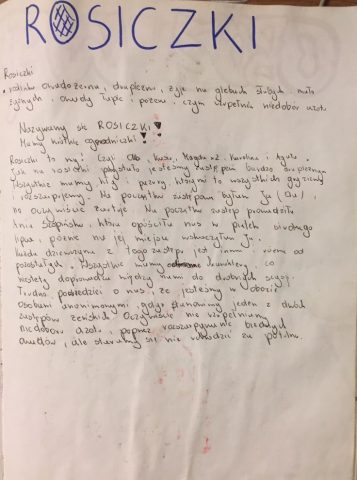 ROSICZKI
Rosiczki
roślina owadożerna, drapieżna, żyje na glebach słabych, mało
żyznych, owady łapie i pożera, czym uzupełnia niedobór azotu
Nazywamy się ROSICZKI!
Mamy krótkie ogrodniczki!
Rosiczki to my! Czyli Ola, Kasia, Magda x2, Karolina i Agata.
Jak na rosiczki przystało jesteśmy zastępem bardzo drapieżnym
Wszystkie mamy kły i pazury, którymi to wszystkich gryziemy
i rozszarpujemy. Na początku zastępem byłam ja (Ola),
no oczywiście zastępy. Na początku zastęp prowadziła
Ania, która opuściła nas w piątek siódmego
lipca, później na jej miejsce wskoczyłam ja.
Każda dziewczyna z tego zastępu jest inna, różna od
pozostałych. Wszystkie mamy charaktery, co
niestety doprowadza między nami do drobnych scysji.
Trudno powiedzieć o nas, że jesteśmy w obozie
osobami anonimowymi, gdyż stanowimy jeden z dwóch
zastępów żeńskich. Oczywiście nie uzupełniamy
niedoboru azotu, poprzez rozszarpywanie biednych
owadów, ale staramy się nie wchodzić za